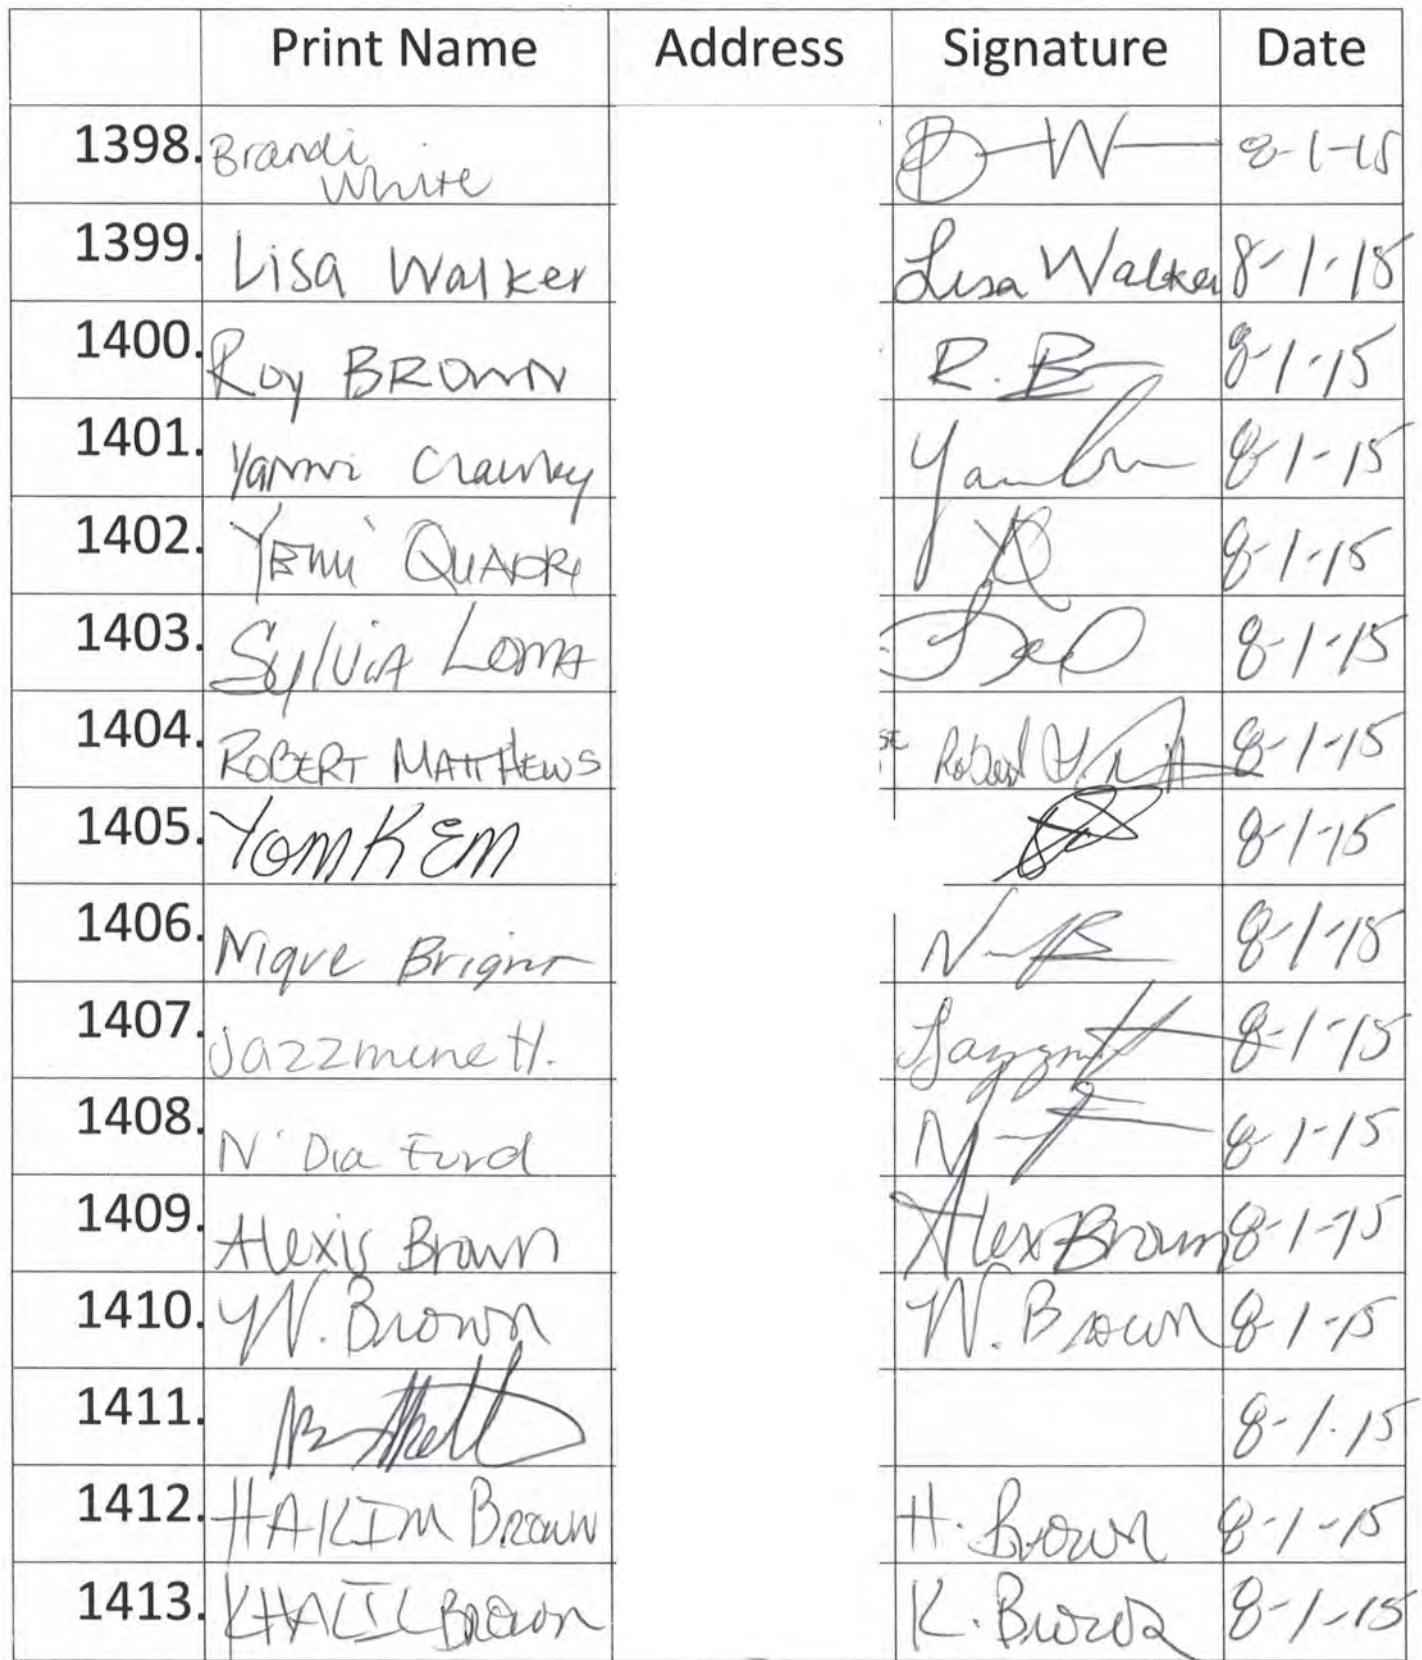 Print Name Address Signature Date
1398. Brandi White 8-1-15
1399. Lisa Walker Lisa Walker 8-1-15
1400. Roy BROWN R. B 8-1-15
1401. Yanni 8-1-15
1402. Yemi QUADRI YQ 8-1-15
1403. Sylvia Loma 8-1-15
1404. ROBERT MATTHEWS Robert 8-1-15
1405. YomKEm 8-1-15
1406. Nique Bright 8-1-15
1407. Jazzmine H. 8-1-15
1408. N'Dia Ford 8-1-15
1409. Alexis Brown Alex Brown 8-1-15
1410. W. Brown W. Brown 8-1-15
1411. 8-1-15
1412. HAKIM Brown H. Brown 8-1-15
1413. KHALIL Brown K. Brown 8-1-15